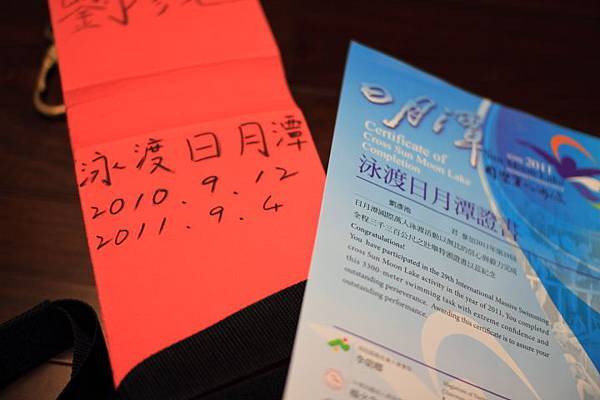 劉
泳渡日月潭
2010.9.12
2011.9.4
日月潭
Certificate of
Cross Sun Moon Lake
Completion
2011
泳渡日月潭證書
君 參加2011年第29屆
日月潭國際萬人泳渡活動以無比的信心與毅力完成
全程三千三百公尺之壯舉特頒證書以茲紀念
Congratulations!
You have participated in the 29th International Massive Swimming
cross Sun Moon Lake activity in the year of 2011. You completed
this 3300-meter swimming task with extreme confidence and
outstanding perseverance. Awarding this certificate is to assure your
outstanding performance.